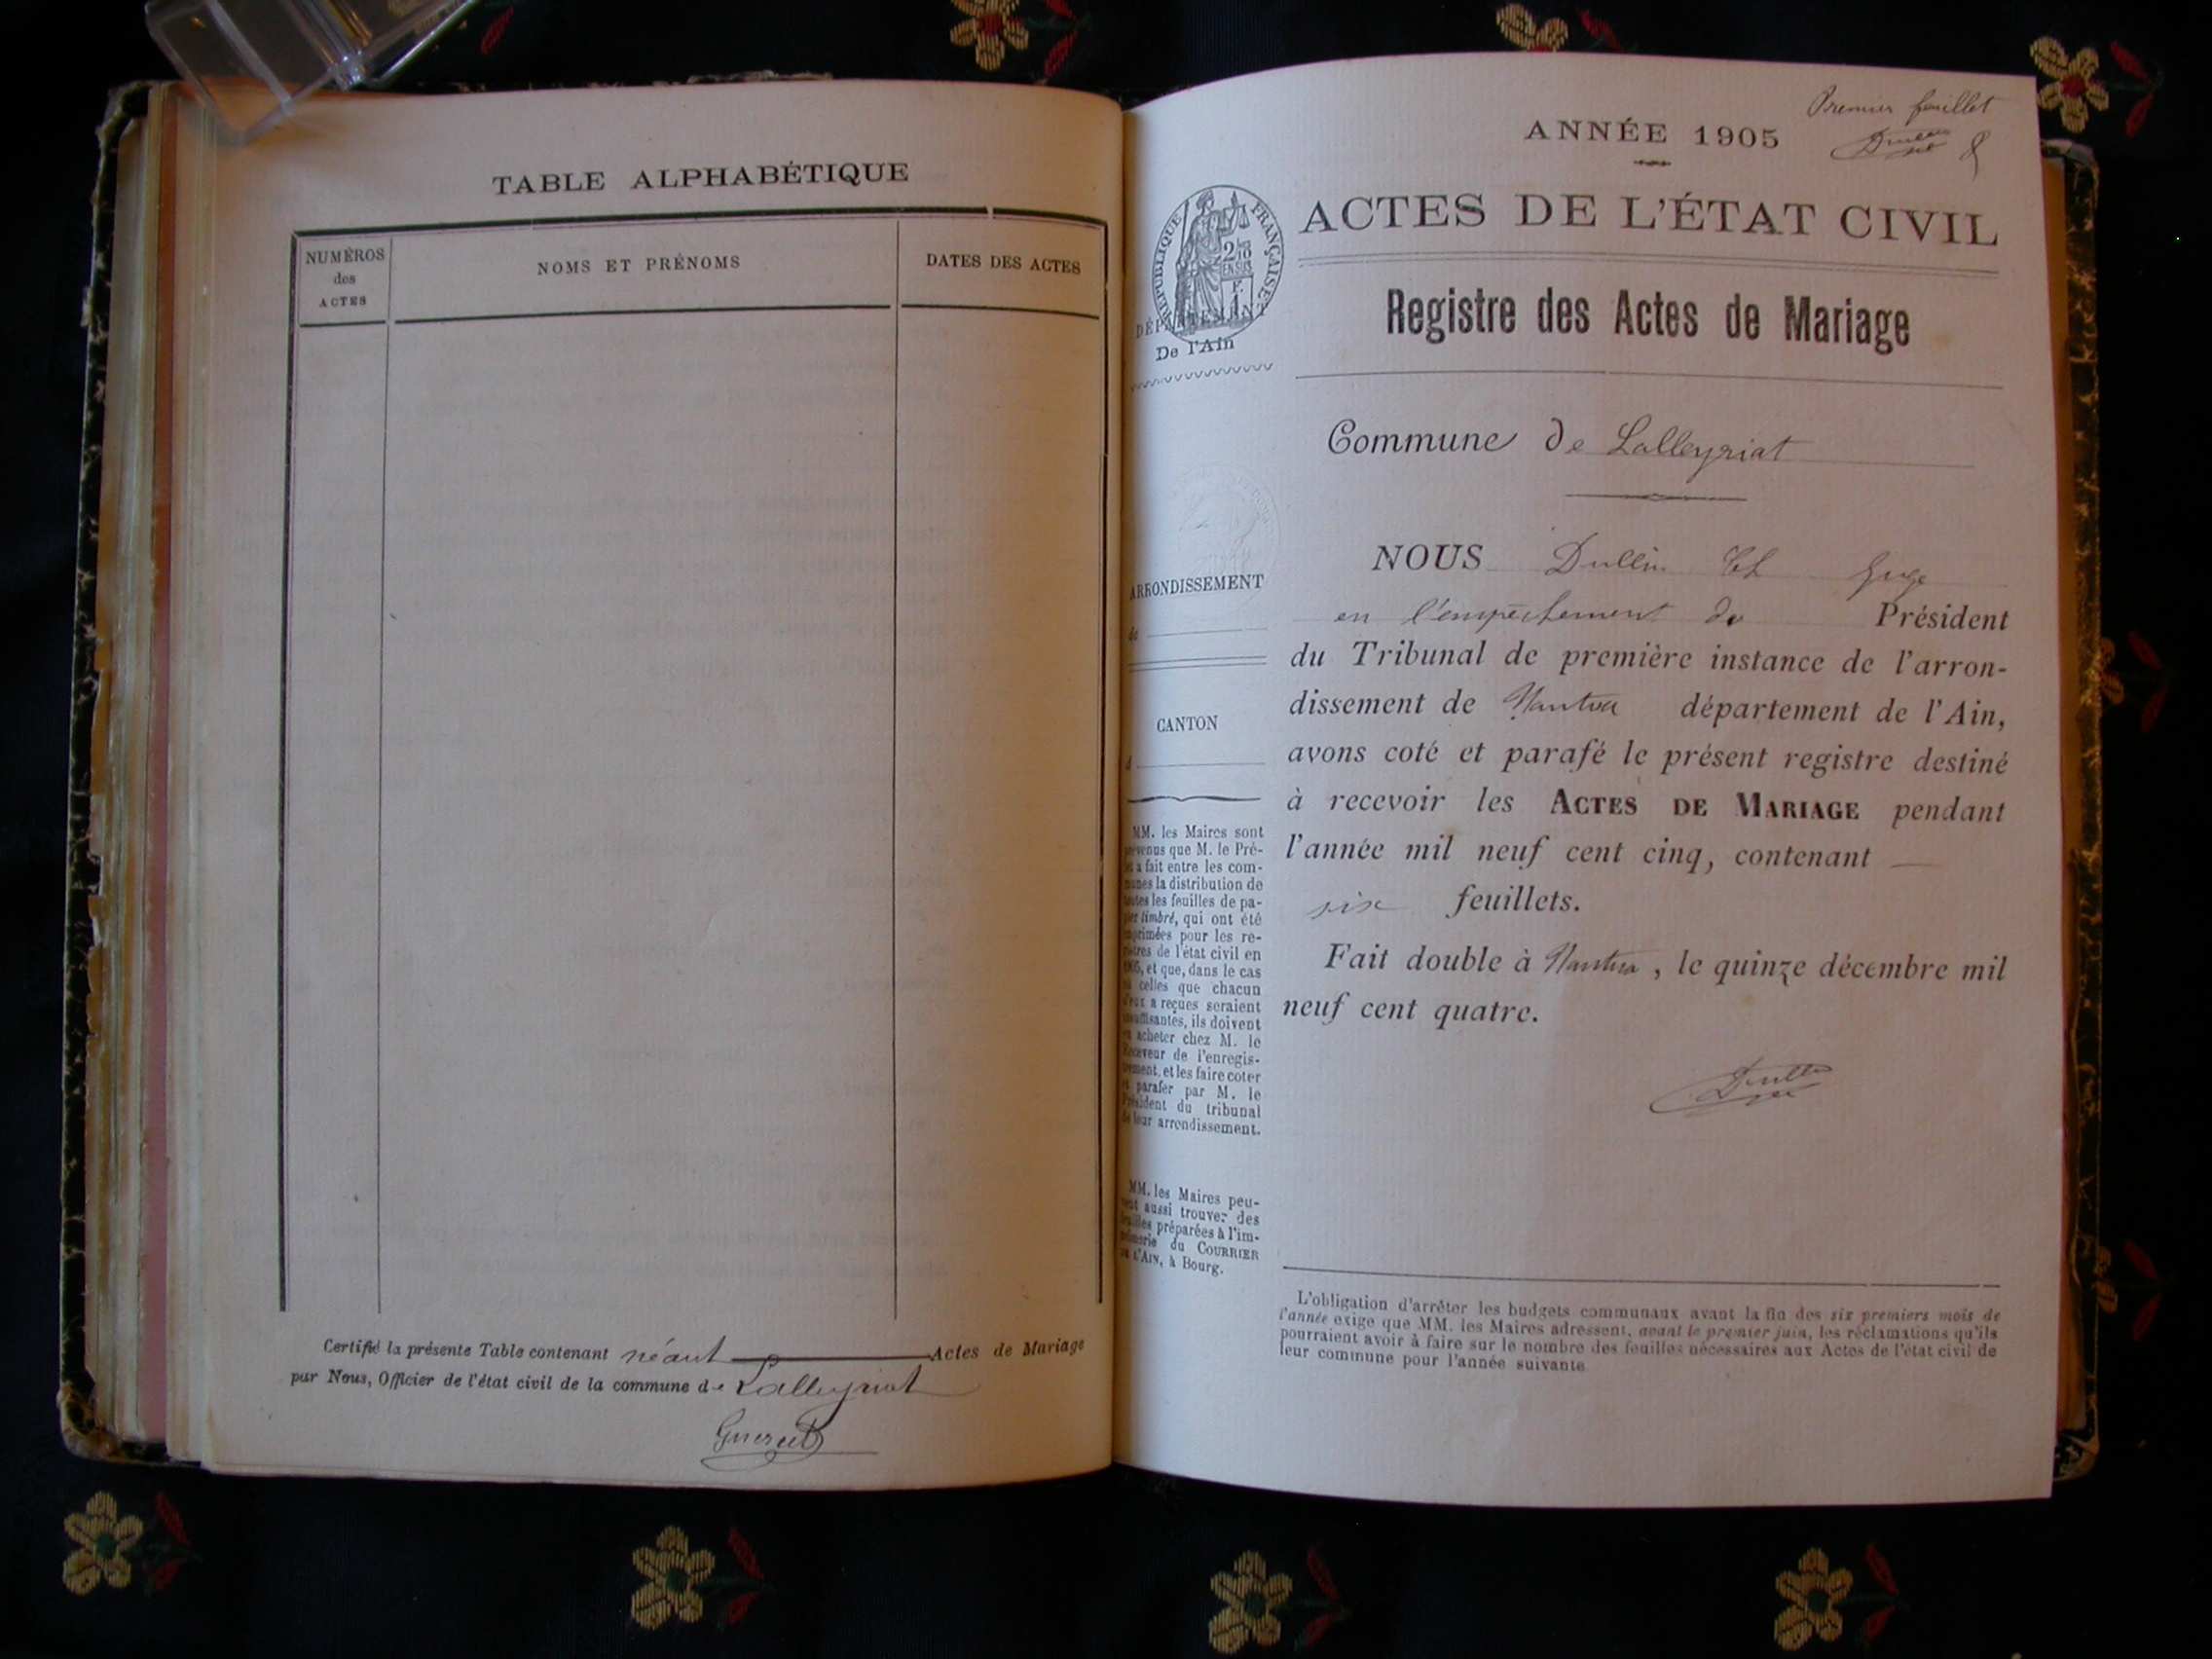 TABLE ALPHABÉTIQUE
NUMÉROS
des
ACTES
NOMS ET PRÉNOMS
DATES DES ACTES
Certifié la présente Table contenant néant Actes de Mariage
par Nous, Officier de l'état civil de la commune de Lalleyriat
Premier feuillet
ANNÉE 1905
RÉPUBLIQUE FRANÇAISE
ACTES DE L'ÉTAT CIVIL
DÉPARTEMENT
De l'Ain
Registre des Actes de Mariage
Commune de Lalleyriat
NOUS Dullin Juge
en l'empêchement du Président
du Tribunal de première instance de l'arron-
dissement de Nantua département de l'Ain,
avons coté et parafé le présent registre destiné
à recevoir les ACTES DE MARIAGE pendant
l'année mil neuf cent cinq, contenant
six feuillets.
Fait double à Nantua, le quinze décembre mil
neuf cent quatre.
ARRONDISSEMENT
de
CANTON
d
MM. les Maires sont
prévenus que M. le Pré-
fet a fait entre les com-
munes la distribution de
toutes les feuilles de pa-
pier timbré, qui ont été
imprimées pour les re-
gistres de l'état civil en
1905, et que, dans le cas
où celles que chacun
d'eux a reçues seraient
insuffisantes, ils doivent
en acheter chez M. le
Receveur de l'enregis-
trement, et les faire coter
et parafer par M. le
Président du tribunal
de leur arrondissement.
MM. les Maires peu-
vent aussi trouver des
feuilles préparées à l'im-
primerie du COURRIER
DE L'AIN, à Bourg.
L'obligation d'arrêter les budgets communaux avant la fin des six premiers mois de
l'année exige que MM. les Maires adressent, avant le premier juin, les réclamations qu'ils
pourraient avoir à faire sur le nombre des feuilles nécessaires aux Actes de l'état civil de
leur commune pour l'année suivante.